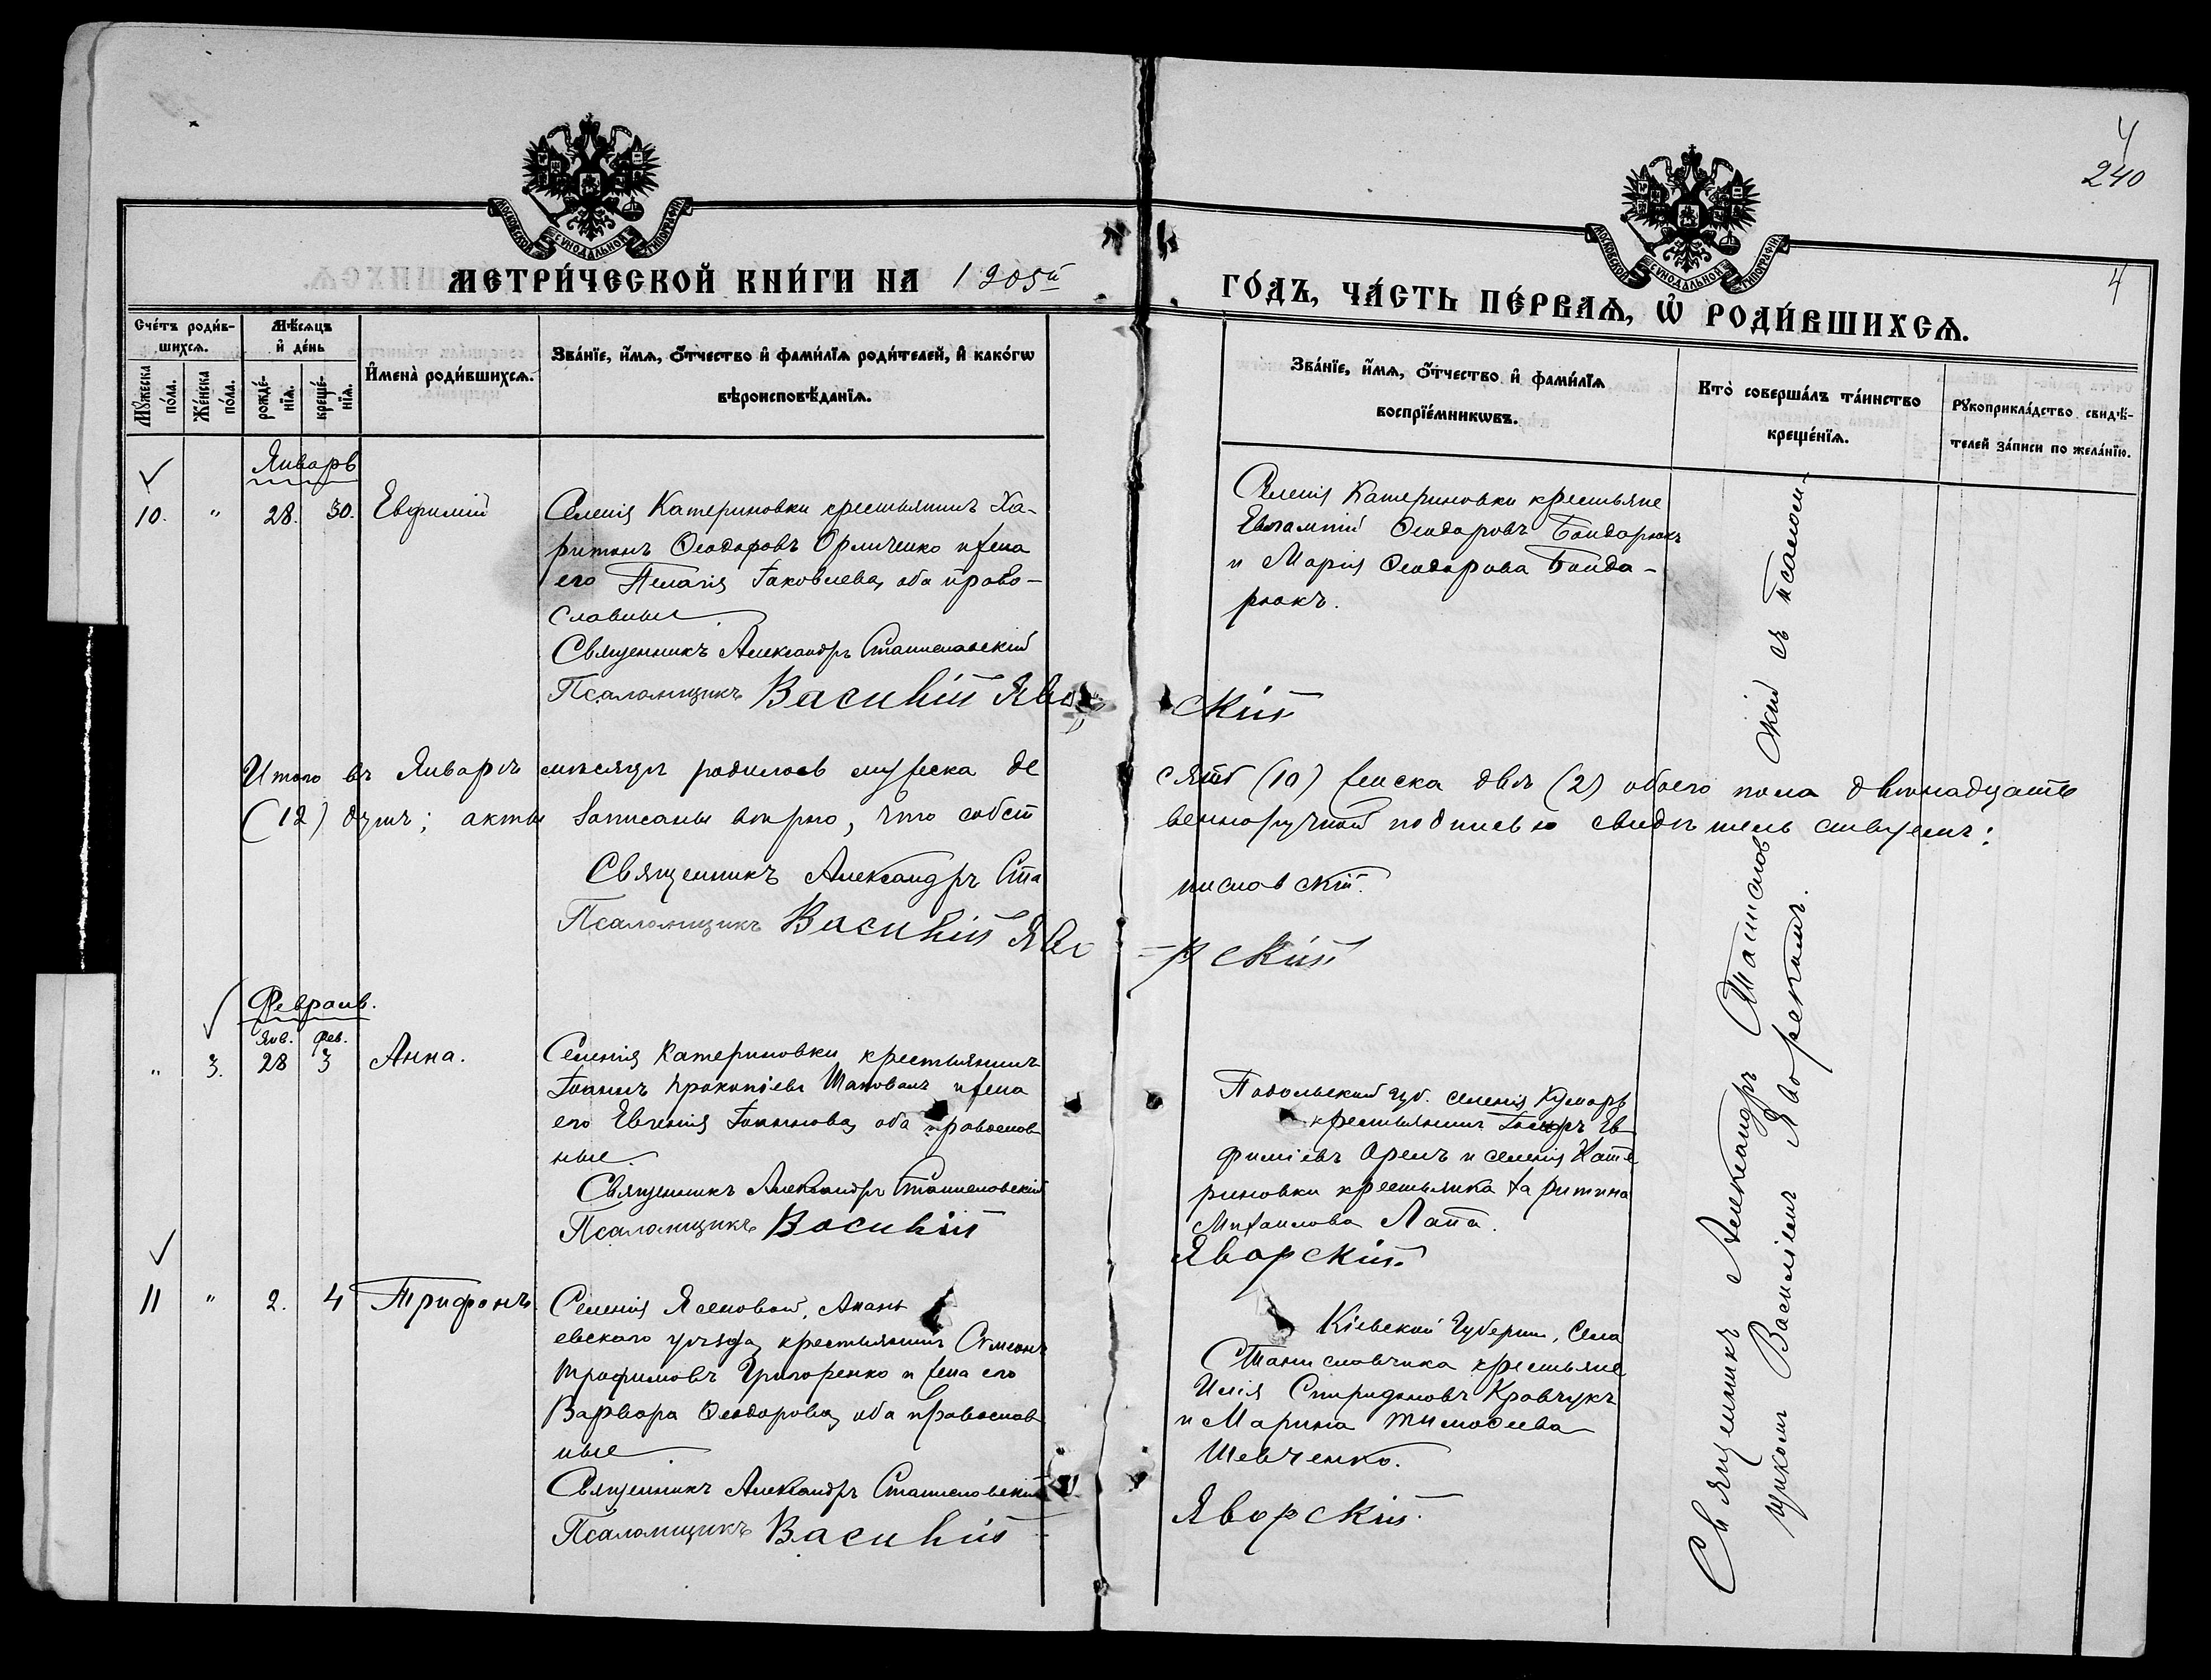 4
240
4
МОСКОВСКОЙ СѴНОДАЛЬНОЙ ТИПОГРАФІИ
МОСКОВСКОЙ СѴНОДАЛЬНОЙ ТИПОГРАФІИ
МЕТРИ́ЧЕСКОЙ КНИ́ГИ НА 1905й
ГО́ДЪ, ЧА́СТЬ ПЕ́РВАѦ, Ѡ҆ РОДИ́ВШИХСѦ.
Сче́тъ роди́в-
шихсѧ.
Мꙋ́жеска по́ла.
Же́нска по́ла.
Мѣ́сѧцъ
и҆ де́нь
рожде́-
нїѧ.
креще́-
нїѧ.
И҆мена̀ роди́вшихсѧ.
Зва́нїе, и҆́мѧ, ѻ҆́тчество и҆ фами́лїѧ роди́телей, и҆ како́гѡ
вѣроисповѣ́данїѧ.
Зва́нїе, и҆́мѧ, ѻ҆́тчество и҆ фами́лїѧ
воспрїе́мникѡвъ.
Кто̀ соверша́лъ та́инство
креще́нїѧ.
Рꙋкоприкла́дство свидѣ́-
телей за́писи по жела́нїю.
Январь
10. " 28. 30. Евфимій
Селенія Катериновки крестьянинъ Ха-
ритонъ Ѳеодоровъ Орличенко и жена
его Пелагія Іаковлева, оба право-
славные.
Священникъ Александръ Станиславскій
Псаломщикъ Василій Яво
скій
Селенія Катериновки крестьяне
Евлампій Ѳеодоровъ Бондарюкъ
и Марія Ѳеодорова Бонда-
рюкъ.
Итого въ Январѣ мѣсяцѣ родилось мужеска де
сять (10) женска двѣ (2) обоего пола двѣнадцать
(12) душъ; акты записаны вѣрно, что собст
венноручной подписью свидѣтельствуемъ:
Священникъ Александръ Ста
ниславскій.
Псаломщикъ Василій Яво
-рскій
Февраль.
Янв. Фев.
" 3. 28 3 Анна.
Селенія Катериновки крестьянинъ
Іоаннъ Прокопіевъ Шаповалъ и жена
его Евгенія Іоаннова, оба православ
ные.
Священникъ Александръ Станиславскій
Псаломщикъ Василій
Яворскій.
Подольской губ. селенія
крестьянинъ Ев
фиміевъ Орелъ и селенія Кате
риновки крестьянка Харитина
Михаилова Лапа.
11 " 2. 4 Трифонъ
Селенія Ясеновой, Анань
евскаго уѣзда, крестьянинъ Сѵмеонъ
Трофимовъ Григоренко и жена его
Варвара Ѳеодорова, оба православ
ные
Священникъ Александръ Станиславскій
Псаломщикъ Василій
Яворскій.
Кіевской Губерніи, села
Станиславчика крестьяне
Илія Спиридоновъ Кравчукъ
и Марина Тимоѳеева
Шевченко.
Священникъ Александръ Станиславскій съ псалом-
щикомъ Василіемъ Яворскимъ.